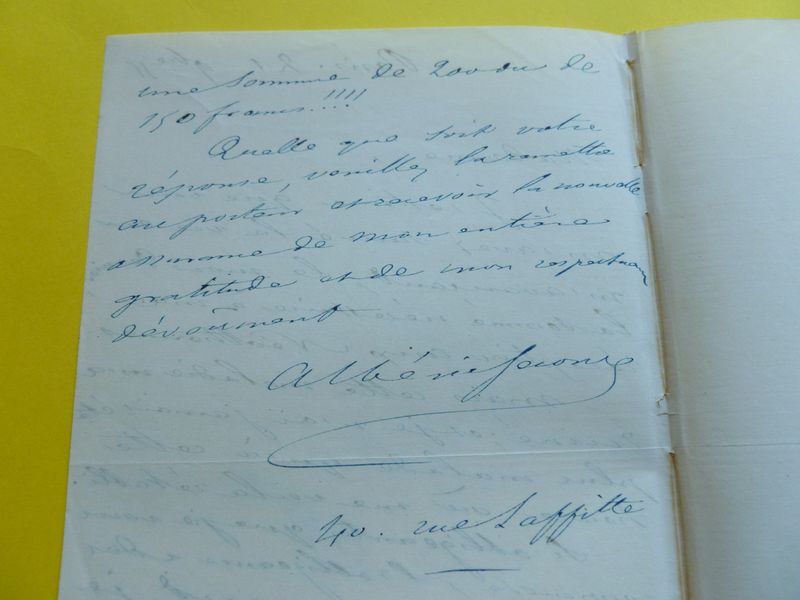 une somme de 200 ou de
150 francs!!!!
Quelle que soit votre
réponse, veuillez la remettre
au porteur et recevoir la nouvelle
assurance de mon entière
gratitude et de mon respectueux
dévoûment
Albéric Second
40. rue Laffitte